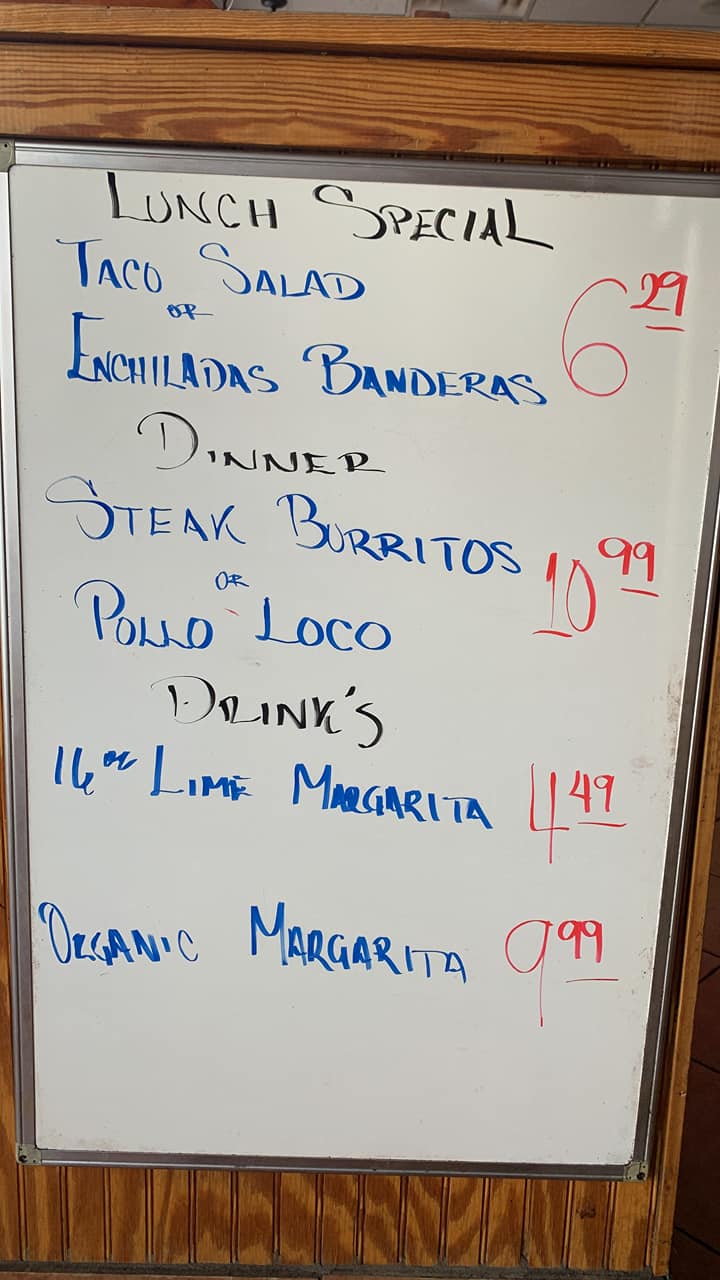 LUNCH SPECIAL
TACO SALAD
OR
ENCHILADAS BANDERAS 6 29
DINNER
STEAK BURRITOS 10 99
OR
POLLO LOCO
DRINK'S
16 oz LIME MARGARITA 4 49
ORGANIC MARGARITA 9 99